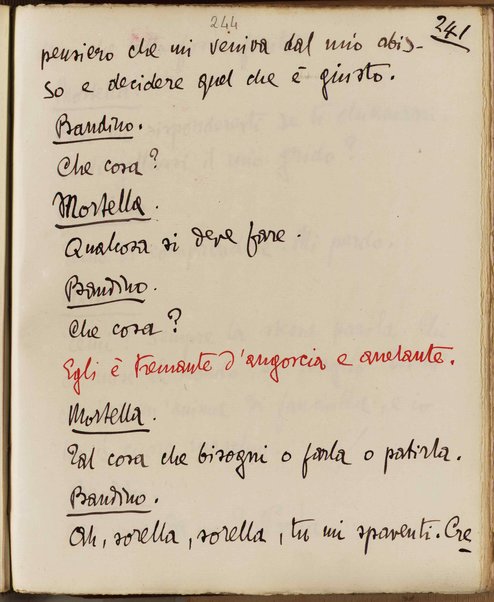 244
241
pensiero che mi veniva dal mio abis-
so e decidere quel che è giusto.
Bandino.
Che cosa?
Mortella.
Qualcosa si deve fare.
Bandino.
Che cosa?
Egli è tremante d'angoscia e anelante.
Mortella.
Tal cosa che bisogni o farla o patirla.
Bandino.
Ah, sorella, sorella, tu mi spaventi. Cre